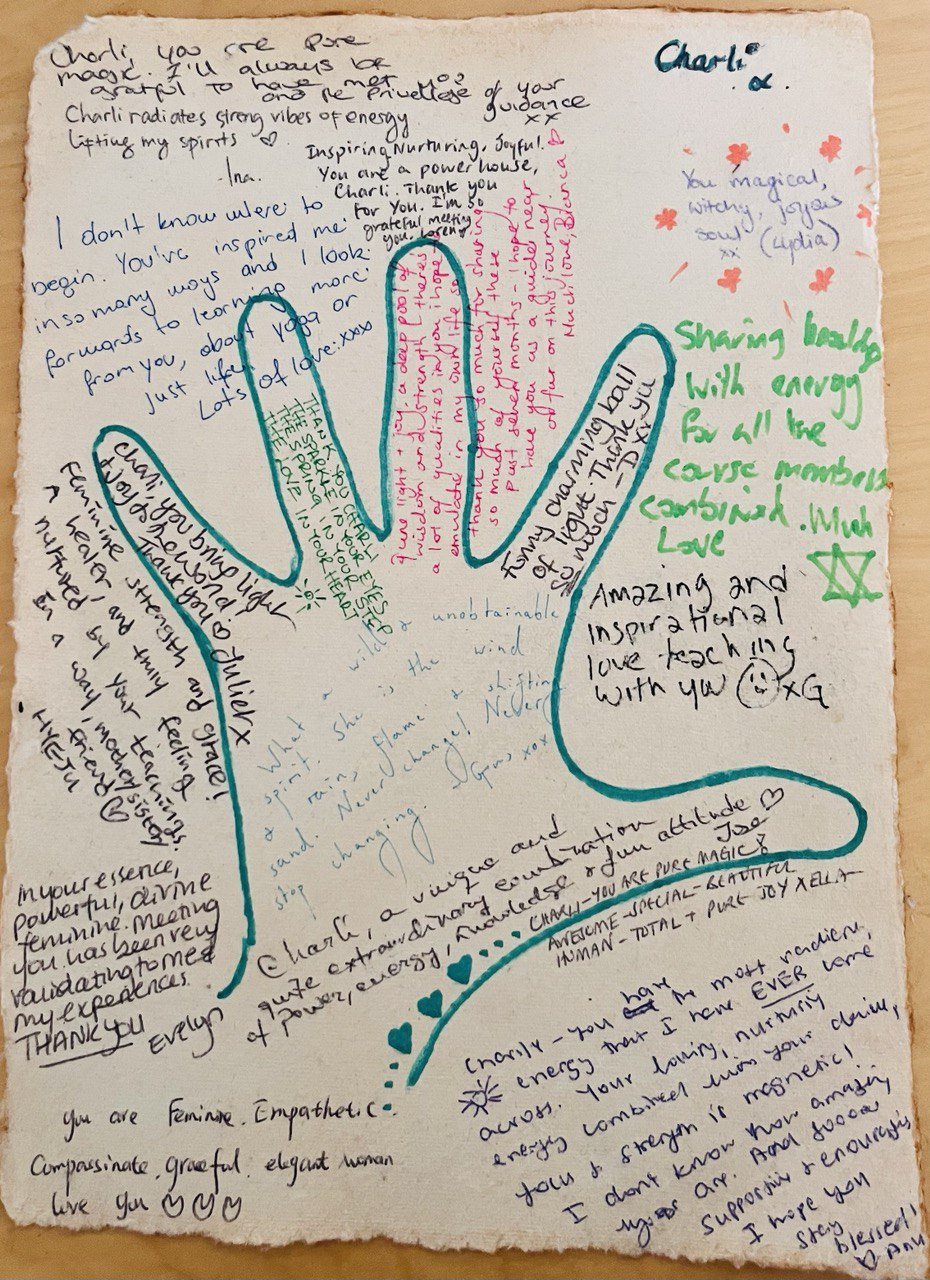 Charli, you are pure
magic. I'll always be
grateful to have met you
and the privellege of your
guidance
xx
Charli radiates strong vibes of energy
lifting my spirits ♡
- Ina.
Charli
x
Inspiring. Nurturing. Joyful.
You are a powerhouse,
Charli. Thank you
for You. I'm so
grateful meeting
you.
You magical,
witchy, joyous
soul (Lydia)
xx
I don't know where to
begin. You've inspired me
in so many ways and I look
forwards to learning more
from you, about yoga or
just life.
Lots of love xxx
Pure light + joy. a deep pool of
wisdom and strength (there's
a lot of qualities in you i hope to
emulate in my own life so
thank you so much for sharing
so much of yourself these
past seven months - I hope to
have you as a guide near
or far on this journey.
Much love, Bianca ♡
THANK YOU CHARLI
THE SPARKLE IN YOUR EYES
THE SPRING IN YOUR STEP
THE LOVE IN YOUR HEART
Funny charming ball
of light. Thank you
so much - D xx
Sharing
with energy
for all the
course members
combined. Much
Love
Amazing and
inspirational
love teaching
with you ☺ xG
Charli, you bring light
+ joy to the world
Thank you ♡ Juliet x
Feminine strength and grace!
A healer, and truly feeling
nurtured by your teachings.
In a way, mother, sister,
friend ♡
HYEJU
What a wild & unobtainable
spirit. She is the wind
& rain, flame & shifting
sand. Never change! Never
stop changing. Gus xox
In your essence,
powerful, divine
feminine. Meeting
you has been very
validating to me &
my experiences.
THANK YOU
Evelyn
Charli, a unique and
quite extraordinary combination
of power, energy, knowledge & fun attitude ♡
CHARLI - YOU ARE PURE MAGIC
AWESOME - SPECIAL - BEAUTIFUL
HUMAN - TOTAL + PURE JOY X ELLA
you have the most radient,
energy that I have EVER come
across. Your loving, nurturing
energy combined with your
focus & strength is magnetic!
I dont know how amazing
you are. And
supportive & encouraging
I hope you
stay
blessed!
♡
You are Feminine. Empathetic.
Compassinate. graceful. elegant woman
love you ♡♡♡